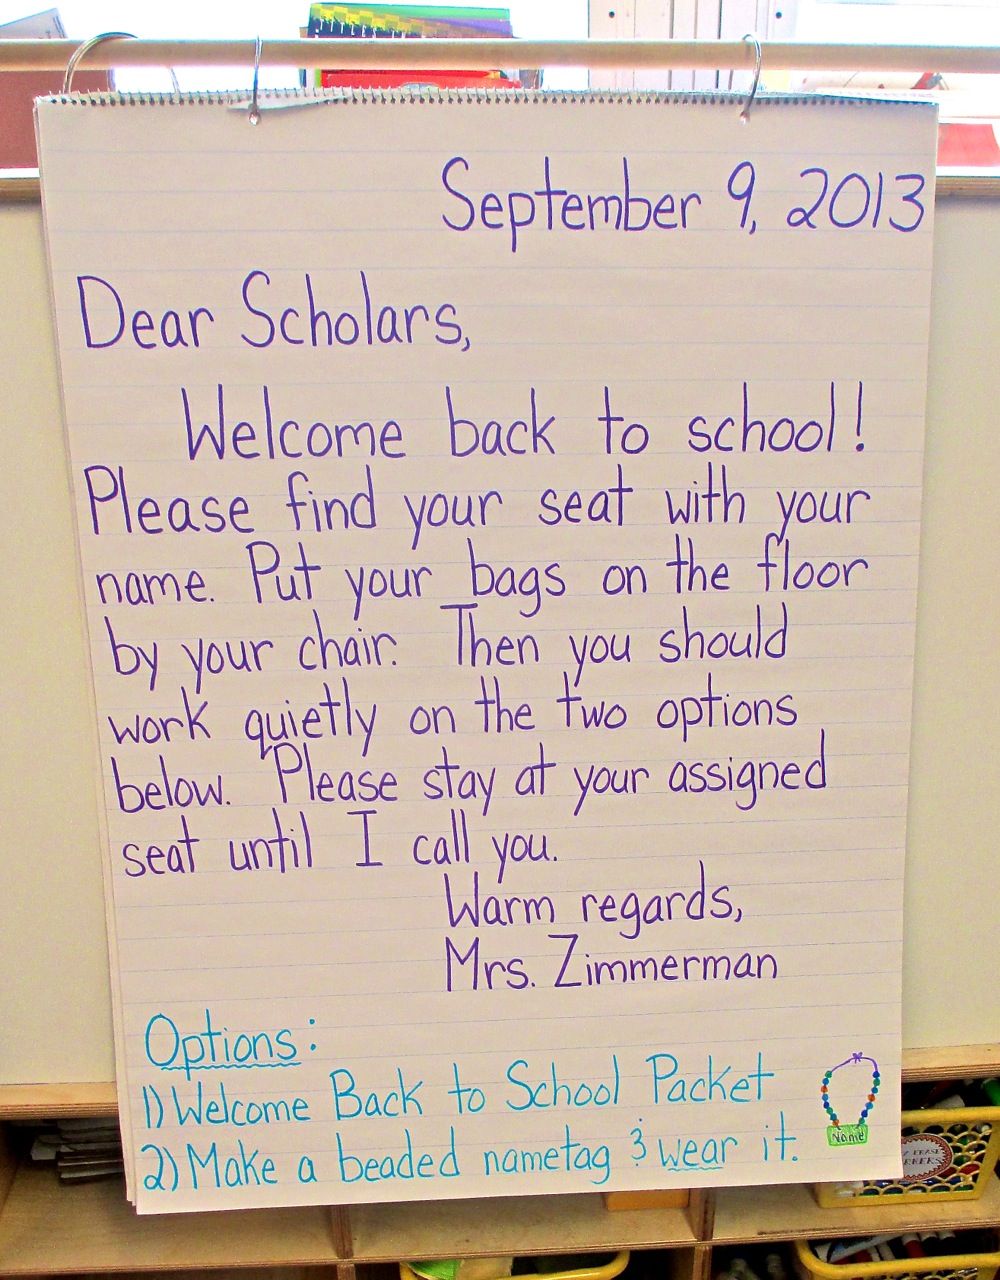 September 9, 2013
Dear Scholars,
Welcome back to school!
Please find your seat with your
name. Put your bags on the floor
by your chair. Then you should
work quietly on the two options
below. Please stay at your assigned
seat until I call you.
Warm regards,
Mrs. Zimmerman
Options:
1) Welcome Back to School Packet
2) Make a beaded nametag & wear it.
Name